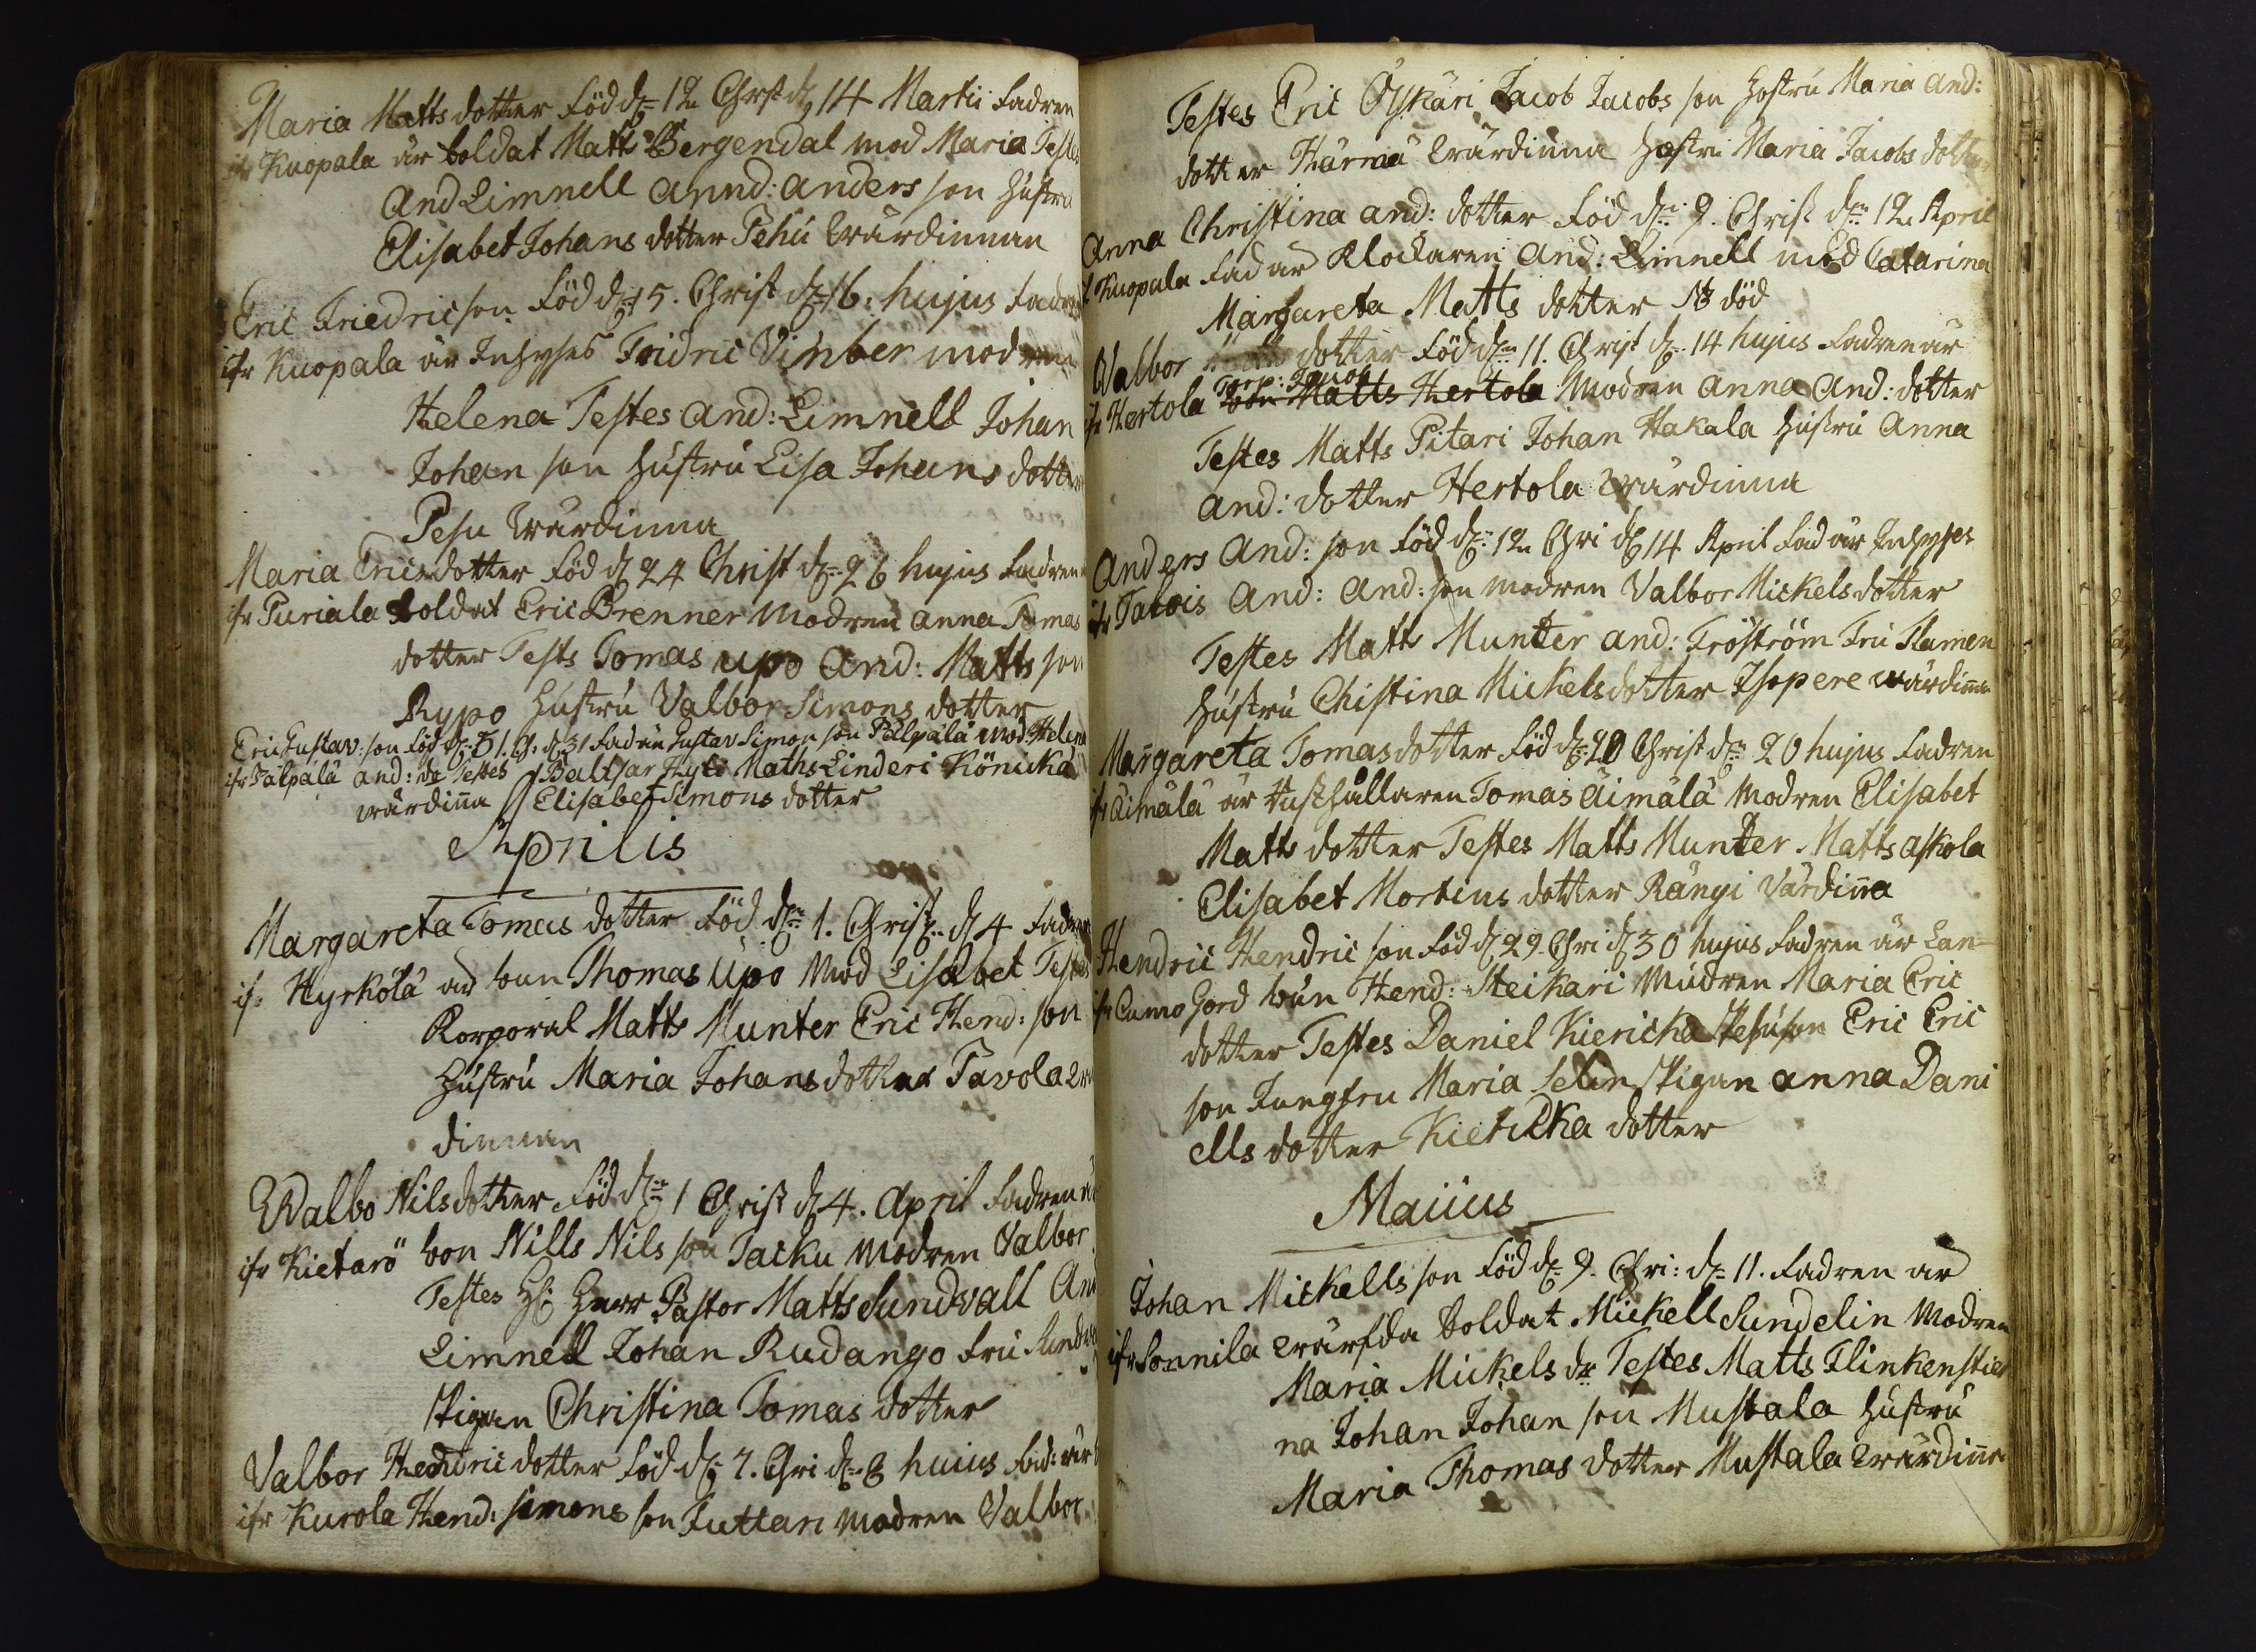 Maria Matts dotter född dn 12 Christ d 14 Martii fadren
ifr Kuopala är soldat Matts Bergendal mod Maria Testes
And Limnell Annd: Anders son hustru
Elisabet Johans dotter Pehu wärdinnan
Eric Friedricson född dn 15. Christ dn 16: hujus fadren
ifr Kuopala är Inhyses Fridric Vimber modren
Helena Testes And: Limnell Johan
Johan son hustru Lisa Johans dotter
Pesu wärdinna
Maria Ericsdotter född d 24 Christ dn 26 hujus fadren
ifr Puriala soldat Eric Brenner modren Anna Tomas
dotter Tests Tomas Upo And: Matts son
Rypo hustru Valbor Simons dotter
Eric Gustav: son född d: 31 fad är Gustav Simon son Pälpälä mod Helena
ifr Pälpälä And: dr Testes Baltsar Hylö Maths Linderi Könickä
wärdinna Elisabet Simons dotter
Aprilis
Margareta Tomas dotter född dn 1. Christ d 4 fadren
if: Hyrkölä är bon Thomas Upo mod Lisabet Testes
Korporal Matts Munter Eric Hend: son
hustru Maria Johans dotter Tavola wär
dinnan
Walbo Nilsdotter född dn 1 Christ d 4. April fadren är
ifr Kietarö bon Nills Nils son Tacku modren Valbor
Testes H: Herr Pastor Matts Sundvall And
Limnell Johan Rudango fru Sundv
pigan Christina Tomas dotter
Valbor Hendric dotter född dn 7. Chri dn 8 huius fad: är b
ifr Kurola Hend: Simons son Juttari modren Valbor
Testes Eric Öskäri Jacob Jacobs son hustru Maria And:
dotter Härmä wärdinna hustru Maria Jacobs dotter
Anna Christina And: dotter född dn 9. Christ dn 12 April
i Kuopala fad är Klockaren And: Limnell mod Catarina
Margareta Matts dotter NB död
Walbor dotter född dn 11. Christ dn 14 hujus fadren är
Torp: Jacob
ifr Hertola bon Matts Hertola modren Anna And: dotter
Testes Matts Pitari Johan Hakala hustru Anna
And: dotter Hertola wärdinna
Anders And: son född dn 12 Chri d 14 April fad är Inhyses
ifr And: And: son modren Valbor Mickels dotter
Testes Matts Munter And: Fröström Fru Flamen
hustru Chistina Mickels dotter Isopere wärdinna
Margareta Tomas dotter född dn 20 Christ dn 20 hujus fadren
ifr Äimälä är Rusthållaren Tomas Äimälä modren Elisabet
Matts dotter Testes Matts Munter Matts Askola
Elisabet Mortens dotter Rängi Värdinna
Hendric Hendric son född d 29. Chri d 30 hujus fadren är Lan-
ifr Cumo Gord bon Hend: Steikari modren Maria Eric
dotter Testes Daniel Kiericka Eric Eric
son Jungfru Maria Selin Pigan Anna Dani
ells dotter Kiericka dotter
Maiius
Johan Mickells son född dn 9. Chri: dn 11. fadren är
ifr Sonnila wärfda soldat Mickell Sundelin modren
Maria Mickels dr Testes Matts Flinkenstier
na Johan Johan son Mustala hustru
Maria Thomas dotter Mustala wärdinna